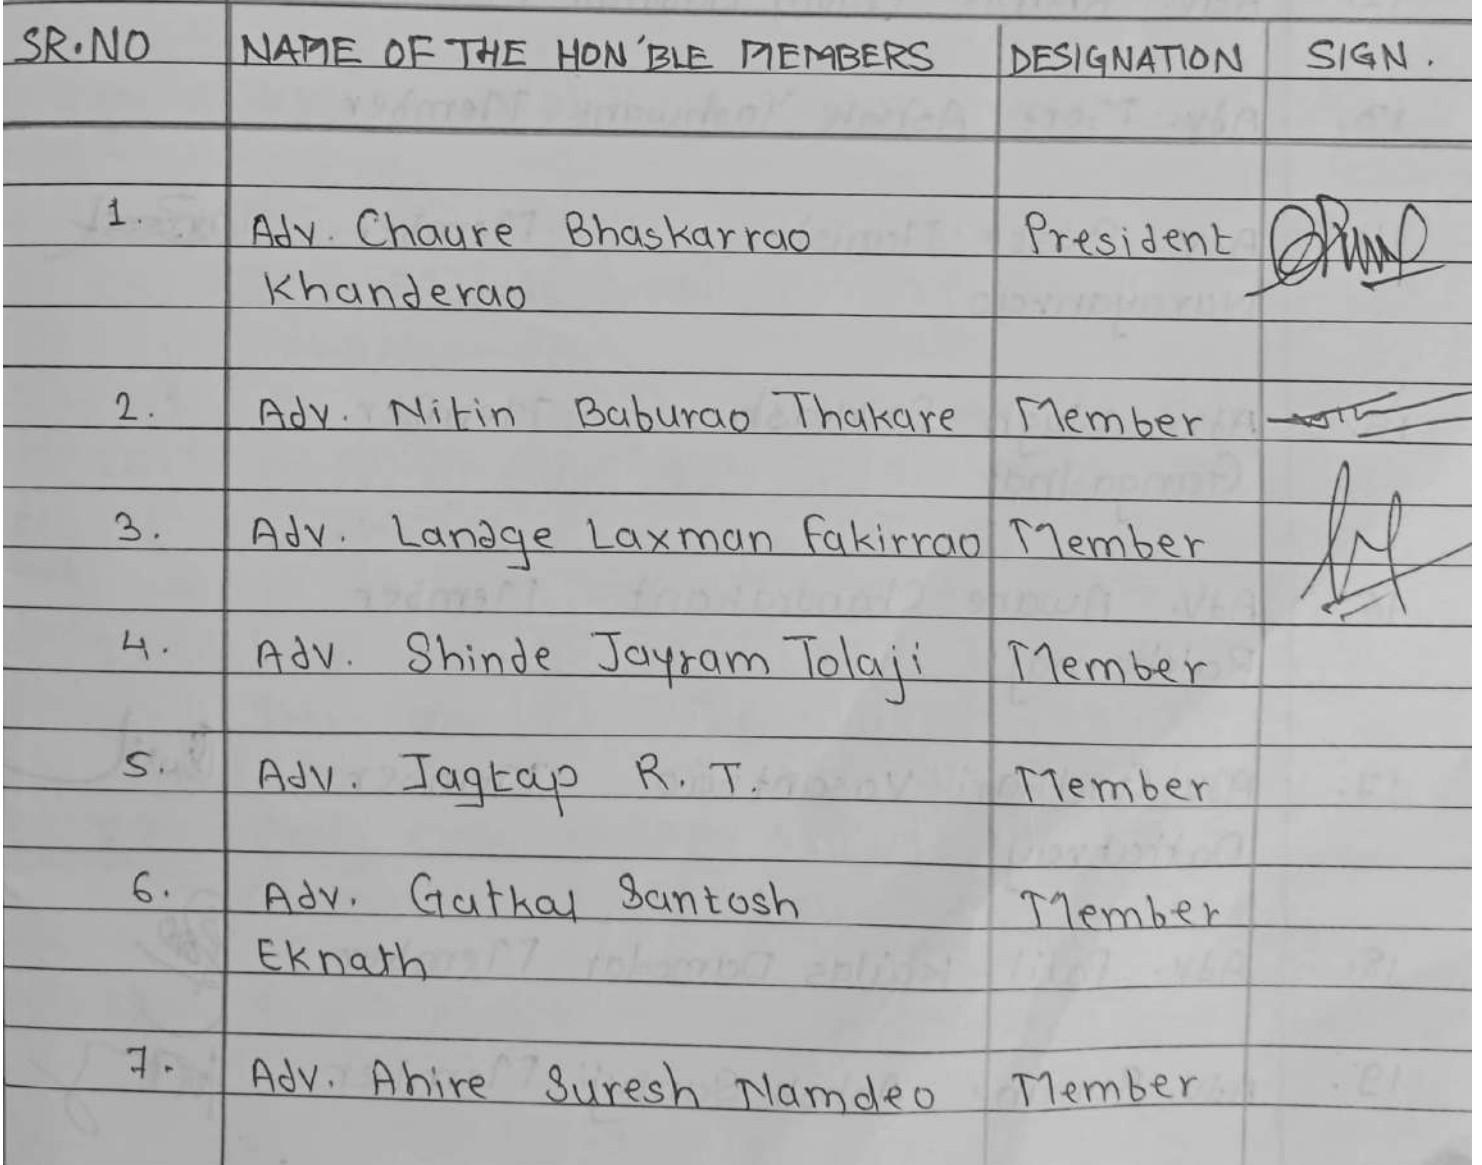 SR.NO NAME OF THE HON'BLE MEMBERS DESIGNATION SIGN.
1. Adv. Chaure Bhaskarrao President
Khanderao
2. Adv. Nitin Baburao Thakare Member
3. Adv. Landge Laxman Fakirrao Member
4. Adv. Shinde Jayram Tolaji Member
5. Adv. Jagtap R. T. Member
6. Adv. Gatkal Santosh Member
Eknath
7. Adv. Ahire Suresh Namdeo Member